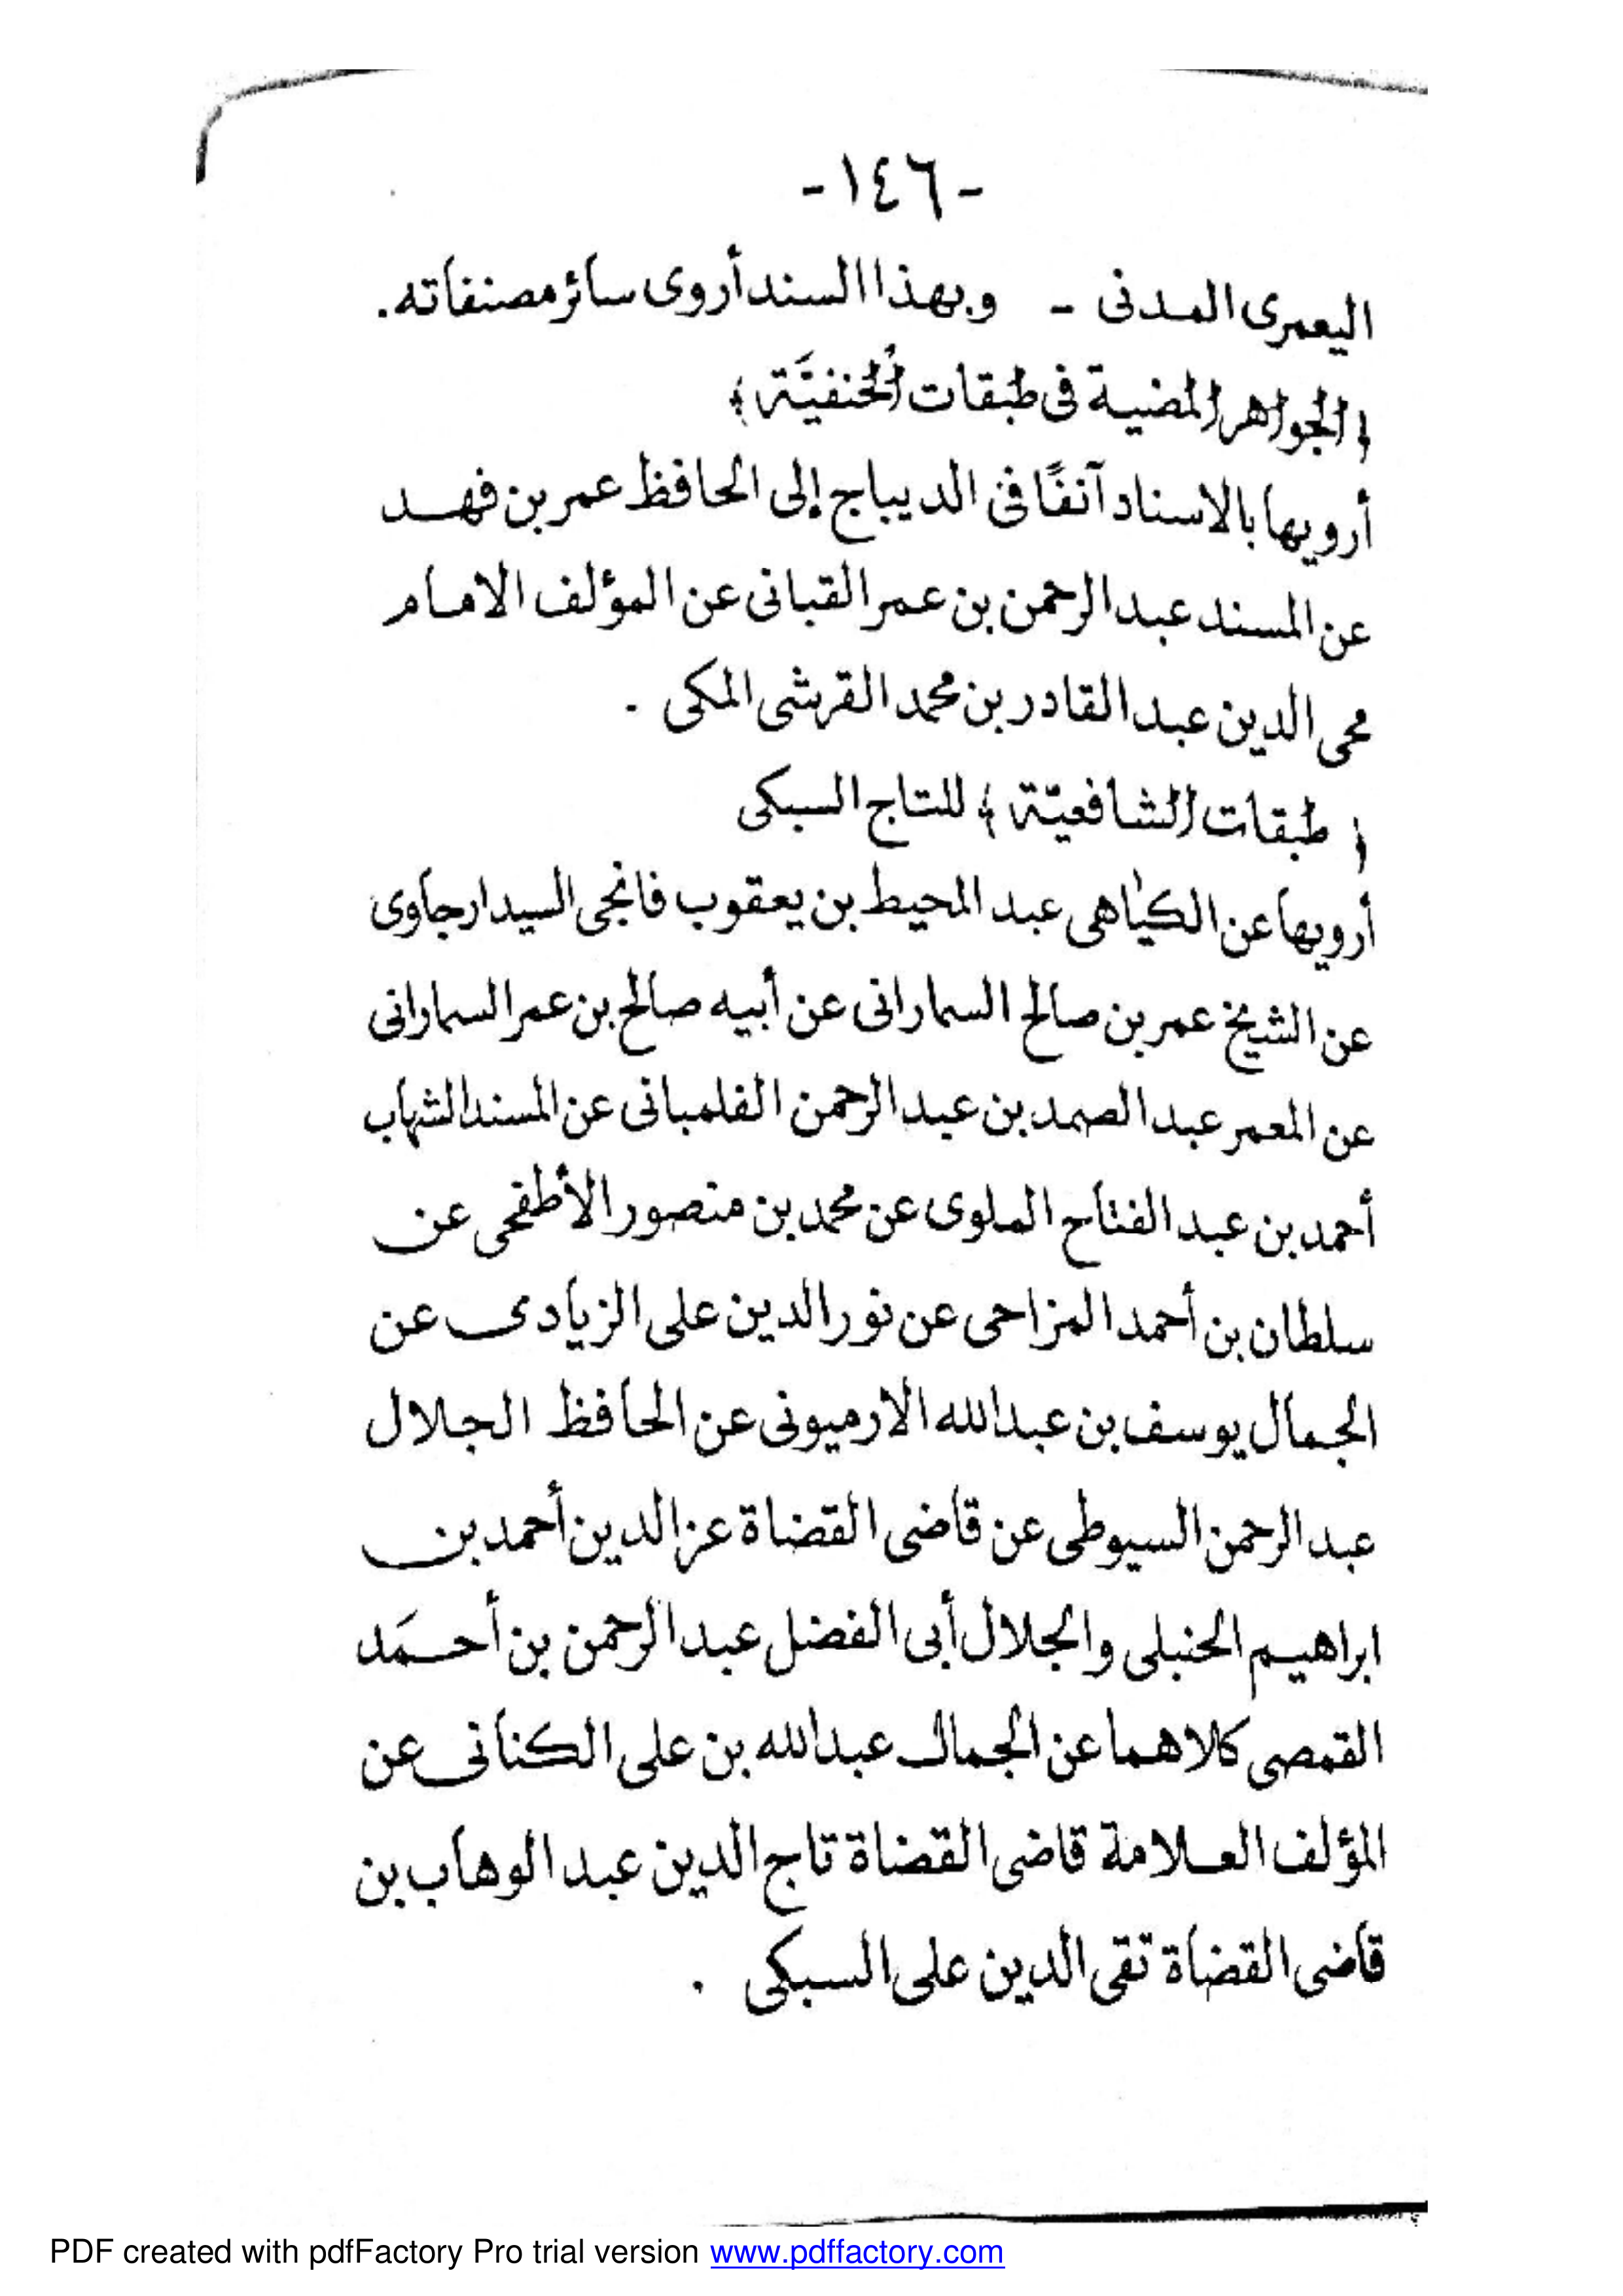 - ١٤٦ -
اليعمرى المدنى - وبهذا السند أروى سائر مصنفاته.
﴿ الجواهر المضية فى طبقات الحُنفيَّة ﴾
أرويها بالاسناد آنفًا فى الديباج إلى الحافظ عمر بن فهد
عن المسند عبد الرحمن بن عمر القبانى عن المؤلف الامام
محى الدين عبد القادر بن محمد القرشى المكى .
﴿ طبقات الشافعيّة ﴾ للتاج السبكى
أرويها عن الكياهى عبد المحيط بن يعقوب فانجى السيدارجاوى
عن الشيخ عمر بن صالح السمارانى عن أبيه صالح بن عمر السمارانى
عن المعمر عبد الصمد بن عبد الرحمن الفلمبانى عن المسند الشهاب
أحمد بن عبد الفتاح الملوى عن محمد بن منصور الأطفحى عن
سلطان بن أحمد المزاحى عن نور الدين على الزيادى عن
الجمال يوسف بن عبد الله الارميونى عن الحافظ الجلال
عبد الرحمن السيوطى عن قاضى القضاة عز الدين أحمد بن
ابراهيم الحنبلى والجلال أبى الفضل عبد الرحمن بن أحمَد
القمصى كلاهما عن الجمال عبد الله بن على الكنانى عن
المؤلف العلامة قاضى القضاة تاج الدين عبد الوهاب بن
قاضى القضاة تقى الدين على السبكى .
PDF created with pdfFactory Pro trial version www.pdffactory.com